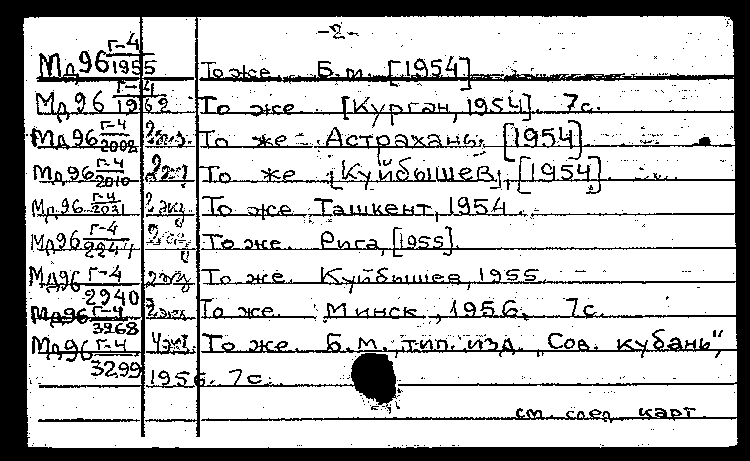 -2-
Мд96 Г-4/1955 То же. Б.м. [1954]
Мд96 Г-4/1962 То же [Курган, 1954]. 7с.
Мд96 Г-4/2002 2экз. То же - Астрахань, [1954]
Мд96 Г-4/2010 2экз То же [Куйбышев], [1954].
Мд96 Г-4/2031 2экз То же Ташкент, 1954.
Мд96 Г-4/2247 2экз То же. Рига, [1955].
Мд96 Г-4/2940 2экз То же. Куйбышев, 1955.
Мд96 Г-4/3268 2экз То же. Минск, 1956. 7с.
Мд96 Г-4/3299 4экз. То же. Б.м., тип. изд. „Сов. кубань",
1956. 7с.
см. след. карт.